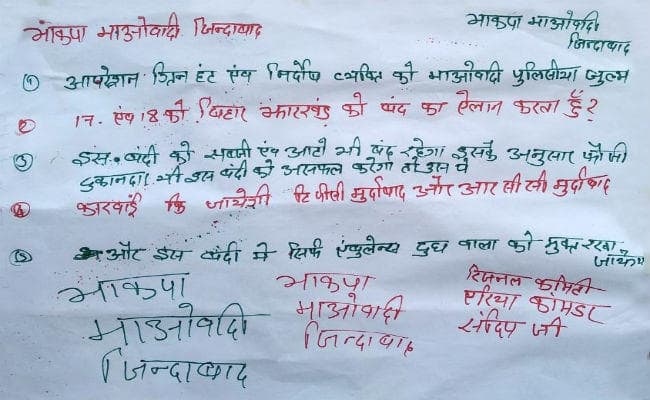 भाकपा माओवादी जिन्दाबाद
भाकपा माओवादी
जिन्दाबाद
① आपरेशन ग्रिन हंट एंव निर्दोष व्यक्ति को माओवादी पुलिसीया जुल्म
② 17. एंव 18 को बिहार झारखंड को बंद का ऐलान करता हुँ?
③ इस बंदी को सवारी एंव आटो भी बंद रहेगा इसके अनुसार कोई
दुकानदार भी इस बंदी को असफल करेगा तो उस पे
④ कारवाई कि जायेगी टिपीसी मुर्दाबाद और आर सी सी मुर्दाबाद
⑤ और इस बंदी मे सिर्फ एंबुलेन्स दुध वाला को मुक्त रखा
जायेगा
भाकपा
माओवादी
जिन्दाबाद
भाकपा
माओवादी
जिन्दाबाद
रिजनल कमिटी
एरिया कमांडर
संदिप जी